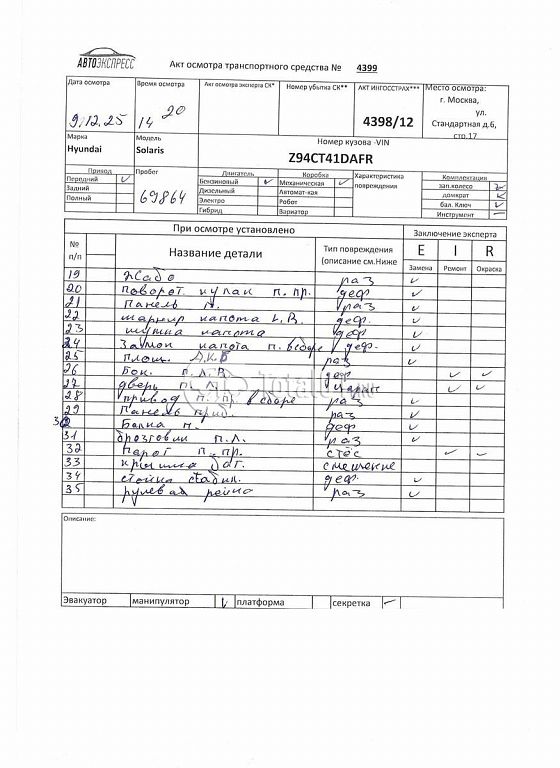 АВТОЭКСПРЕСС
Акт осмотра транспортного средства № 4399
Дата осмотра
Время осмотра
Акт осмотра эксперта СК*
Номер убытка СК**
АКТ ИНГОССТРАХ***
Место осмотра:
9.12.25
14 20
4398/12
г. Москва,
ул.
Стандартная д.6,
стр.17
Марка
Модель
Номер кузова -VIN
Hyundai
Solaris
Z94CT41DAFR
Привод
Пробег
Двигатель
Коробка
Характеристика повреждения
Комплектация
Передний ✓
69864
Бензиновый ✓
Механическая ✓
зап.колесо ✓
Задний
Дизельный
Автомат-кая
домкрат ✓
Полный
Электро
Робот
бал. Ключ ✓
Гибрид
Вариатор
Инструмент –
При осмотре установлено
Заключение эксперта
№ п/п
Название детали
Тип повреждения (описание см.Ниже
E I R
Замена Ремонт Окраска
19 Жабо раз ✓
20 поворот. кулак п. пр. деф ✓
21 Панель п. раз ✓
22 шарнир капота L.R. деф. ✓
23 шумка капота деф ✓
24 Замок капота п. в сборе деф. ✓
25 площ. А.К.Б раз ✓
26 Бок. п. Л.В деф ✓ ✓
27 дверь п. Л. царап ✓ ✓
28 привод п. пр. в сборе раз ✓
29 Панель приб. раз ✓
30 Балка п. деф ✓
31 брызговик п.Л. раз ✓
32 Порог п. пр. стёс ✓ ✓
33 крышка баг. смещение
34 стойка стабил. деф. ✓
35 рулевая рейка раз ✓
Описание:
Эвакуатор
манипулятор ✓
платформа
секретка –